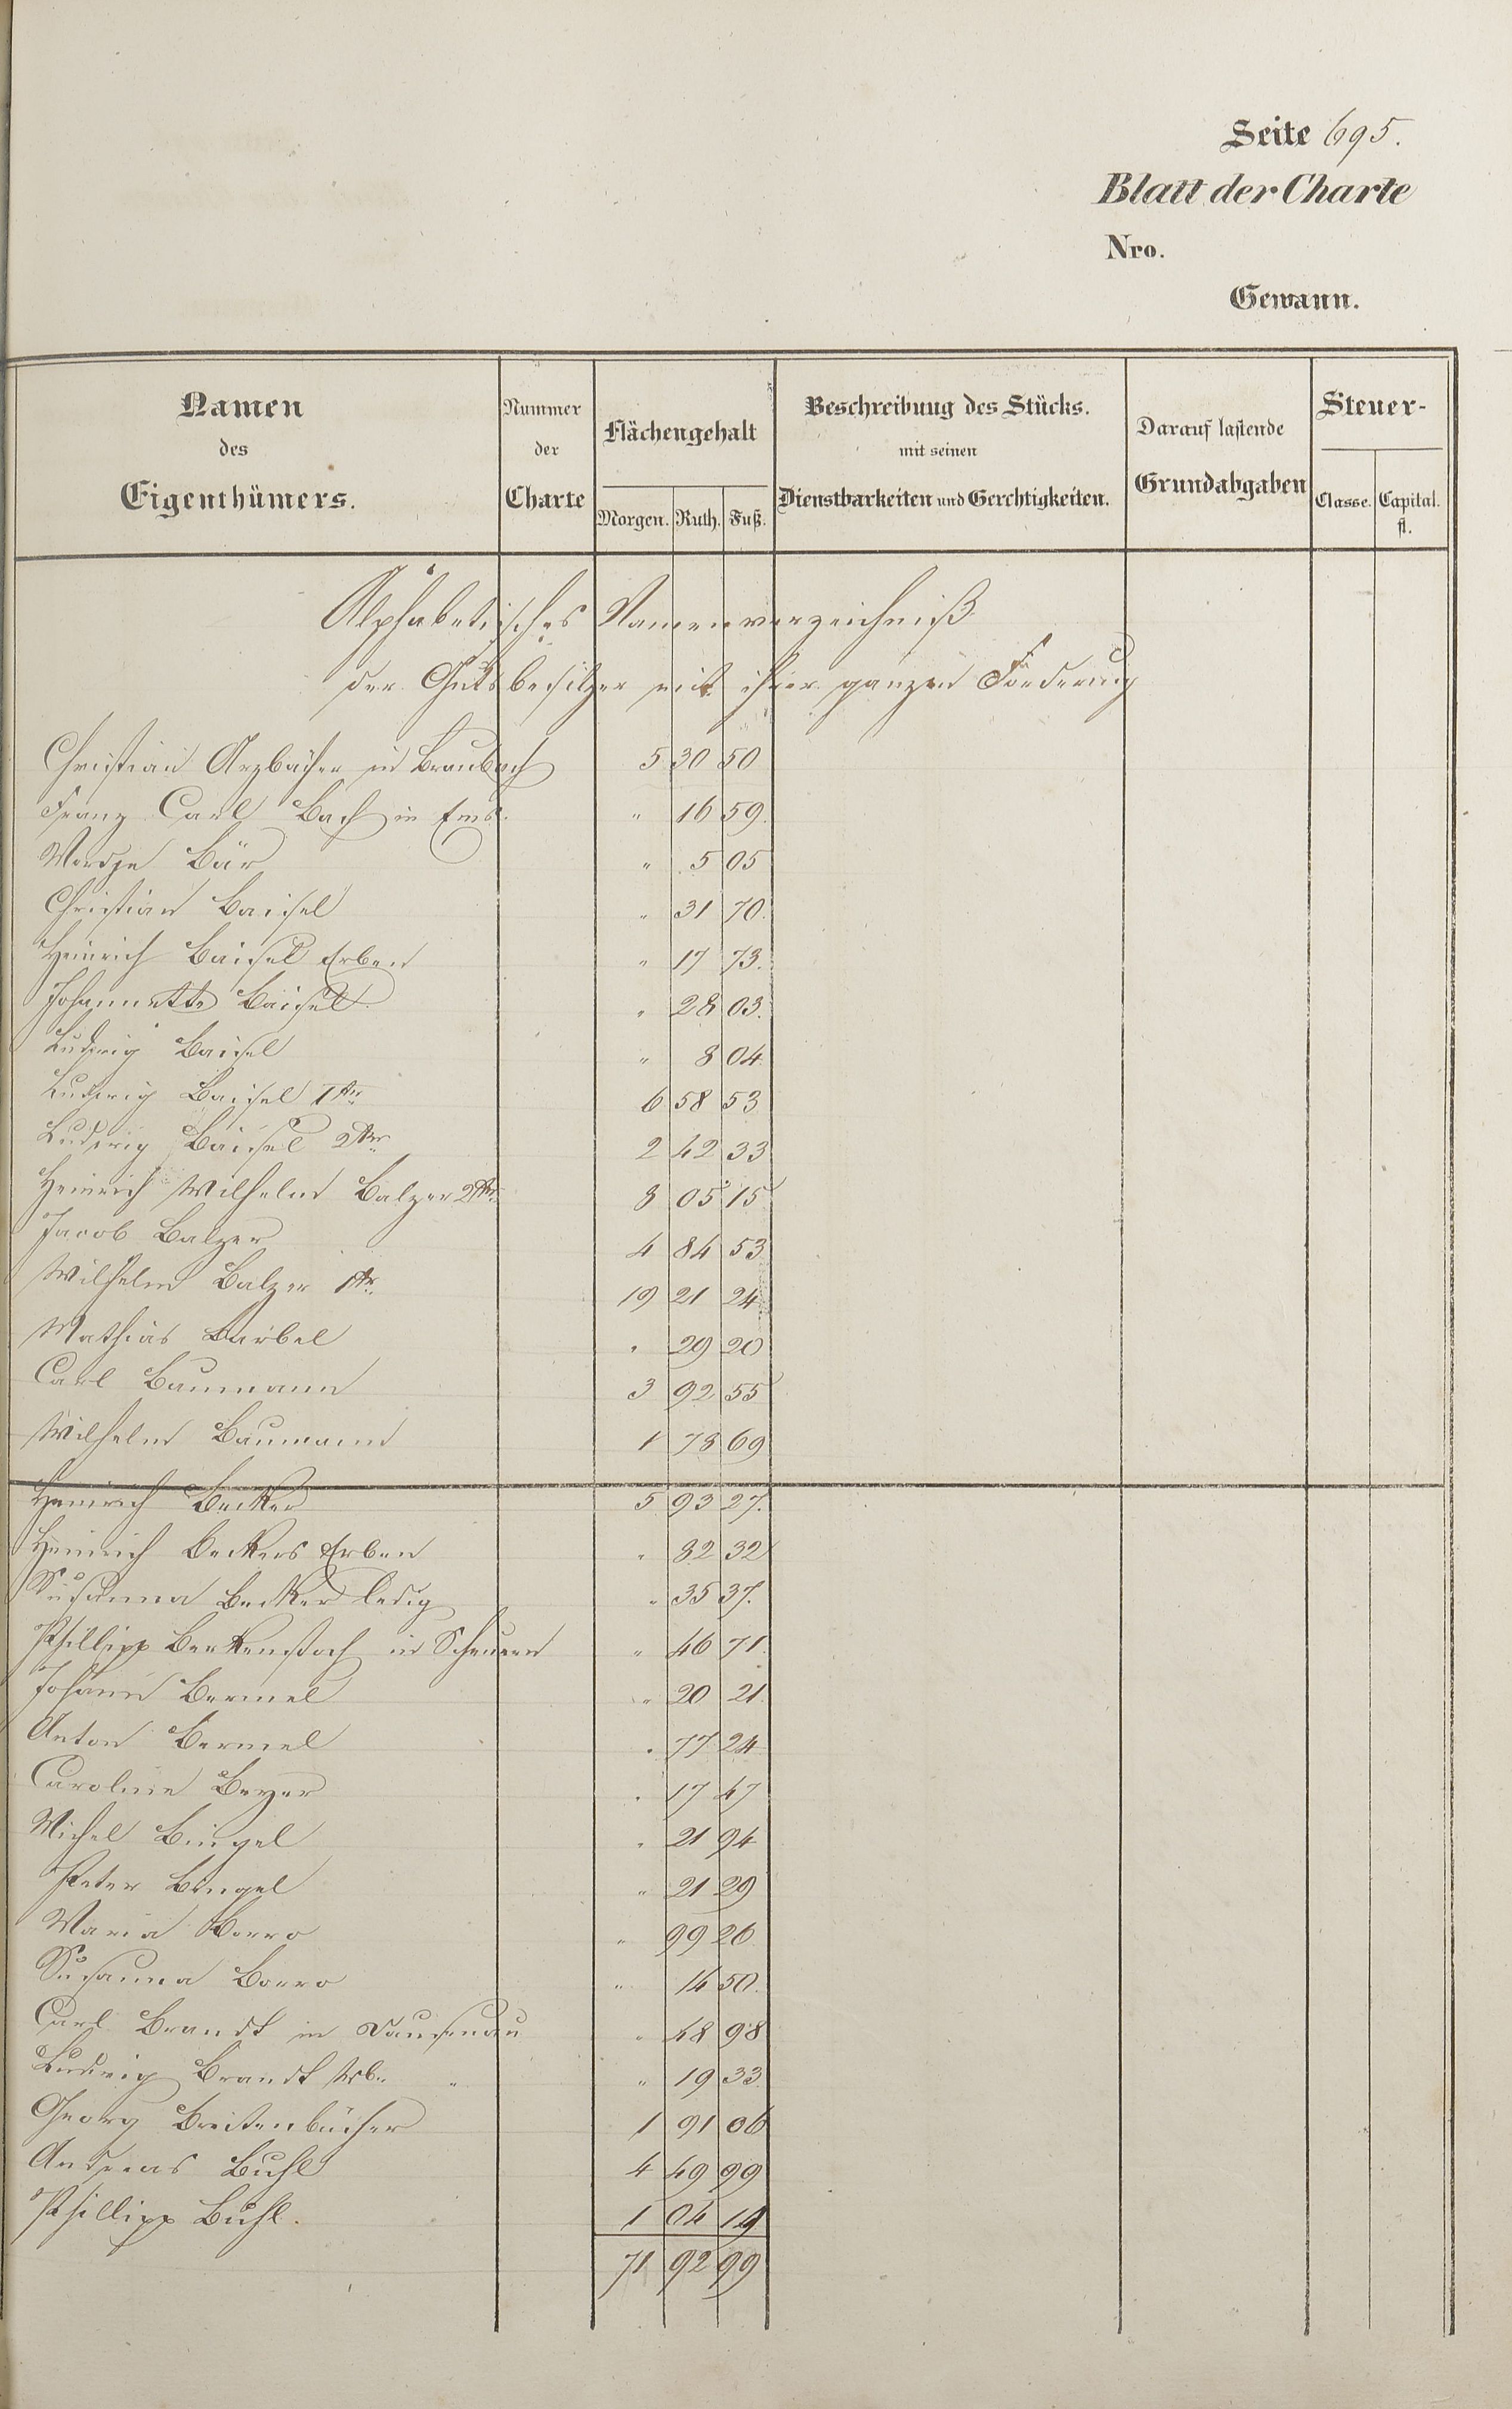 Seite 695.
Blatt der Charte
Nro.
Gewann.
Namen des Eigenthümers.
Nummer der Charte
Flächengehalt
Morgen. Ruth. Fuß.
Beschreibung des Stücks. mit seinen Dienstbarkeiten und Gerechtigkeiten.
Darauf lastende Grundabgaben
Steuer-
Classe. Capital. fl.
Alphabetisches Namenverzeichniß
der Gutsbesitzer mit ihrer ganzen Forderung
Christian Arzbächer in Braubach 5 30 50
Franz Carl Bach in Ems. " 16 59.
Bär " 5 05
Christian Baisel " 31 70.
Heinrich Baisel Erben " 17 73.
Johannette Baisel " 28 03.
Ludwig Baisel " 8 04
Ludwig Baisel 1ter 6 58 53
Ludwig Baisel 2ter 2 42 33
Heinrich Wilhelm Balzer 2ter 8 05 15
Jacob Balzer 4 84 53
Wilhelm Balzer 1ter 19 21 24
Mathias Barbel " 29 20
Carl Baumann 3 92 55
Wilhelm Baumann 1 78 69
Heinrich Becker 5 93 27.
Heinrich Beckers Erben " 82 32
Susanna Becker ledig " 35 37.
Phillipp Berkenstock in Scheuern " 46 71
Johann Bermel " 20 21.
Anton Bermel " 77 24
Caroline Beyer " 17 47
Michel Bingel " 21 94
Peter Bingel " 21 29
Maria Borro " 99 26
Susanna Borro " 14 50.
Carl Brandt in Dausenau " 48 98
Ludwig Brandt " " 19 33
Georg Breitenbücher 1 91 06
Andreas Buhl 4 49 99
Phillipp Buhl. 1 04 19
71 92 99